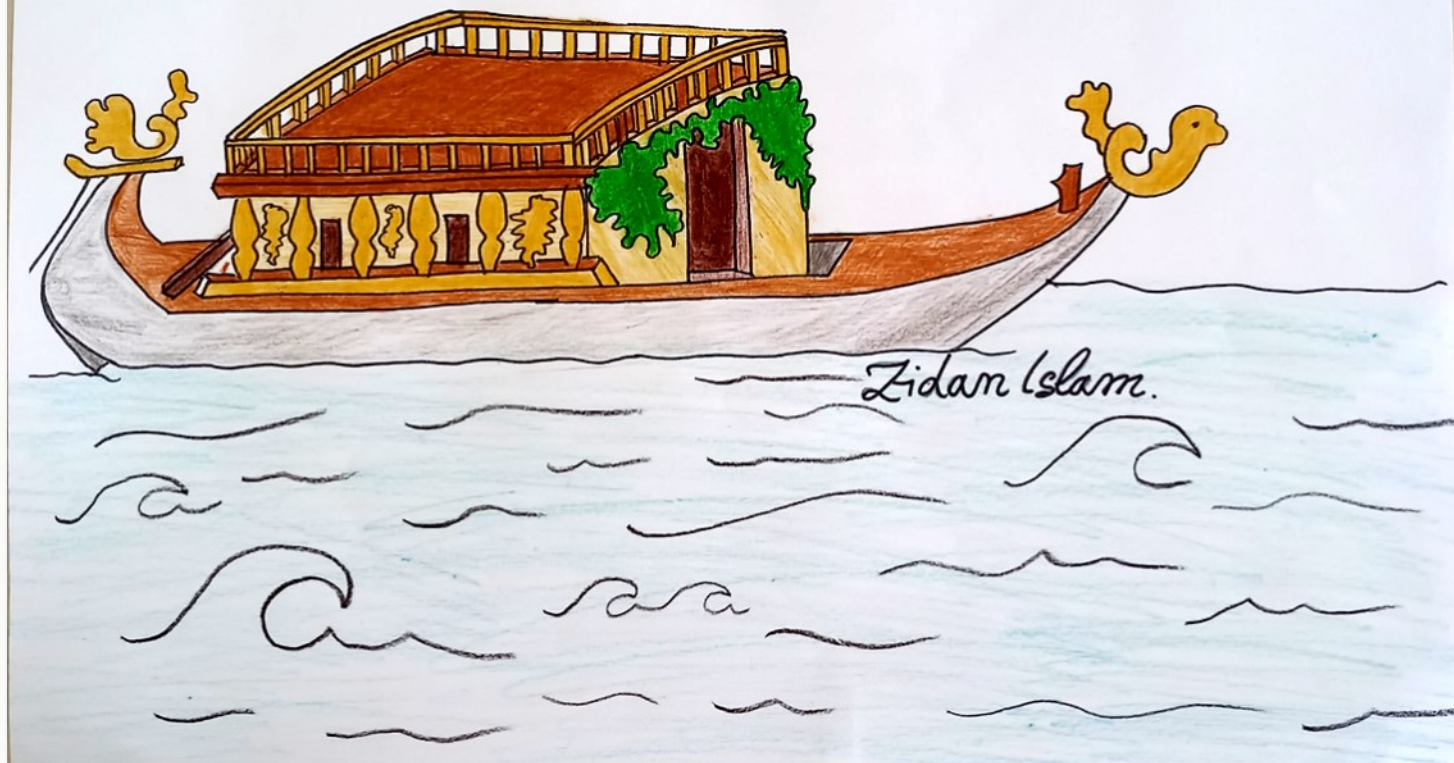 Zidan Islam.